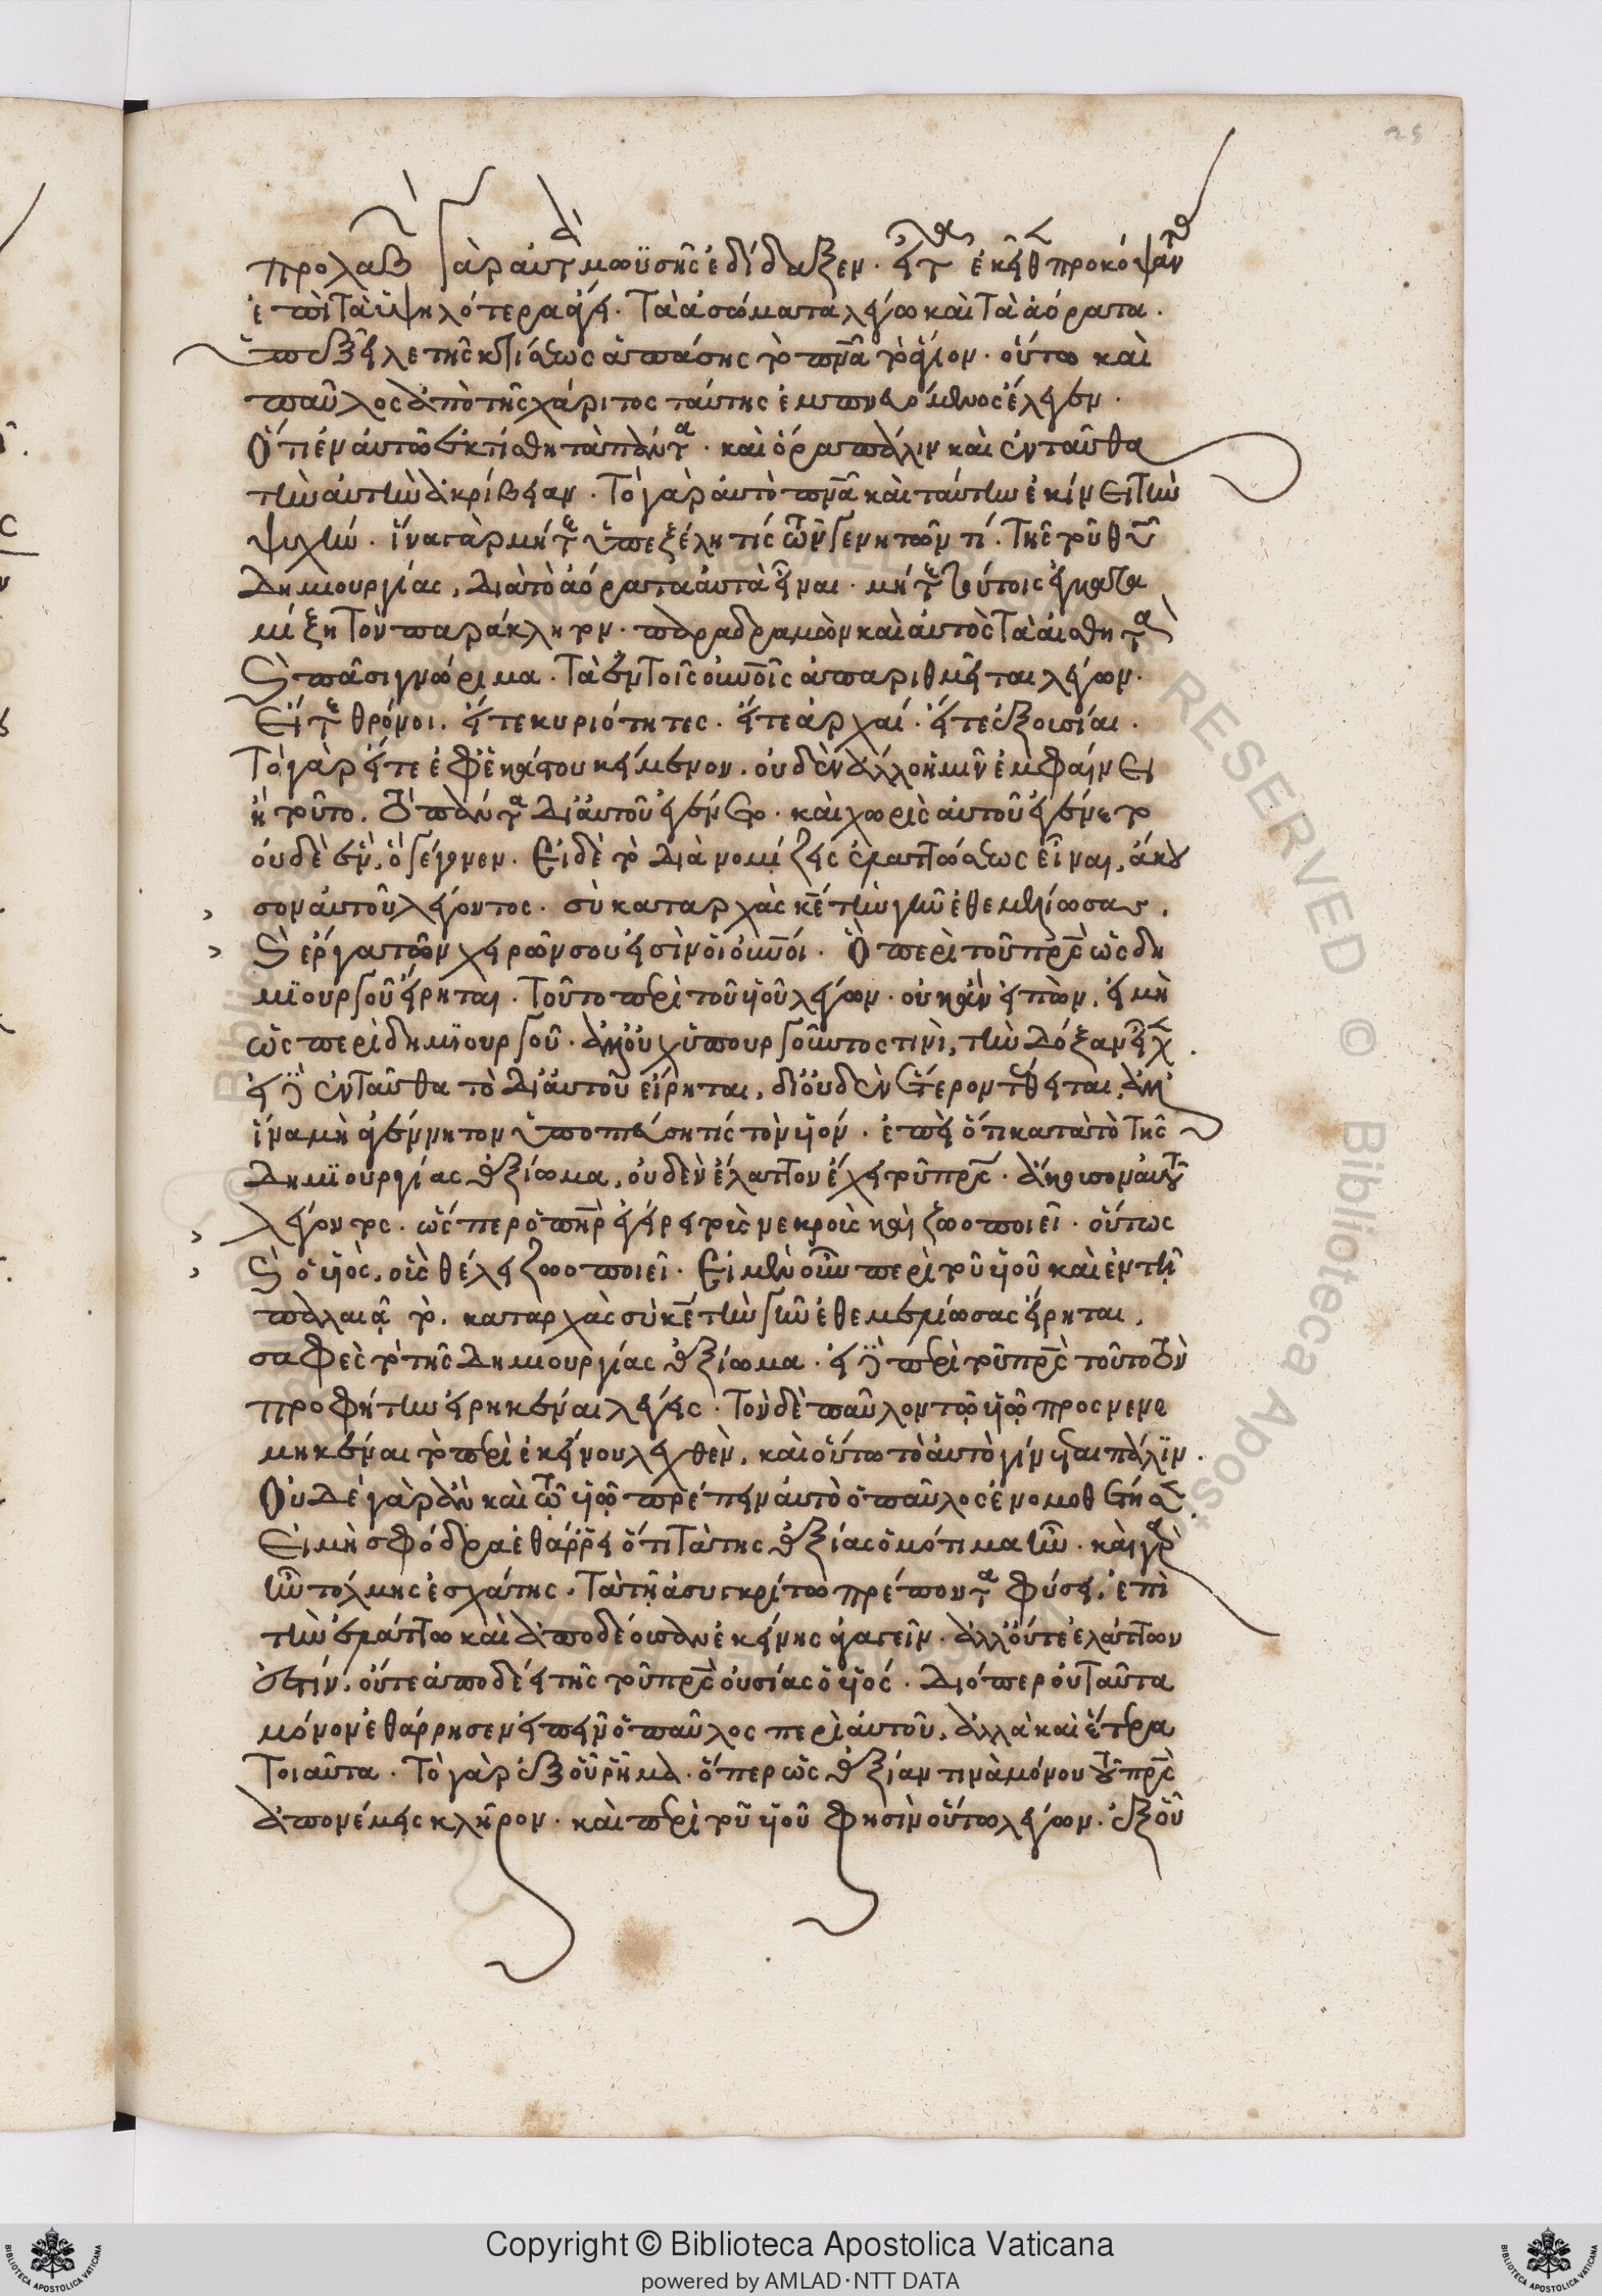 προλαβ γὰρ αὐτ μωϋσῆς ἐδίδαξεν.
ἐπὶ τὰ ὑψηλότερα ἄγει. τὰ ἀσώματα λέγω καὶ τὰ ἀόρατα.
ὑπεξεῖλε τῆς κτίσεως ἁπάσης τὸ πνᾶ τὸ ἅγιον. οὕτω καὶ
παῦλος ἀπὸ τῆς χάριτος ταύτης ἔλεγεν.
Ὅτι ἐν αὐτῶ ἐκτίσθη τὰ πάντα. καὶ ὅρα πάλιν καὶ ἐνταῦθα
τὴν αὐτὴν ἀκρίβειαν. Τὸ γὰρ αὐτὸ πνᾶ καὶ ταύτην ἐκίνει τὴν
ψυχήν. ἵνα γὰρ μήτε ὑπεξέλη τίς τῶν γενητῶν τί. τῆς τοῦ θυ
Δημιουργίας, διὰ τὸ ἀόρατα αὐτὰ εἶναι. μήτε τούτοις
μίξη τὸν παράκλητον. παραδραμὼν καὶ αὐτὸς τὰ αἰσθητὰ
καὶ πᾶσι γνώριμα. τὰ ἐν τοῖς οὐνοῖς ἀπαριθμεῖται λέγων.
Εἴτε θρόνοι. εἴτε κυριότητες. εἴτε ἀρχαί. εἴτε ἐξουσίαι.
Τὸ γὰρ εἴτε ἐφ' ἑκάστου κείμενον. οὐδὲν ἄλλο ἡμῖν ἐμφαίνει
ἢ τοῦτο. ὅτι πάντα δι' αὐτοῦ ἐγένετο. καὶ χωρὶς αὐτοῦ ἐγένετο
οὐδὲ ἕν, ὃ γέγονεν. Εἰ δὲ τὸ διὰ νομίζεις ἐλαττώσεως εἶναι, ἄκου
σον αὐτοῦ λέγοντος. σὺ καταρχὰς κε τὴν γῆν ἐθεμελίωσας,
καὶ ἔργα τῶν χειρῶν σου εἰσὶν οἱ οὐνοί. Ὃ περὶ τοῦ πρς ὡς δη
μϊουργοῦ εἴρηται. Τοῦτο περὶ τοῦ υἱοῦ λέγων. οὐκ ἂν εἰπὼν, εἰ μὴ
ὡς περὶ δημϊουργοῦ. ἀλλ' οὐχ' ὑπουργοῦντος τινὶ, τὴν δόξαν εἶχ.
εἰ δὲ ἐνταῦθα τὸ δι' αὐτοῦ εἴρηται, δι' οὐδὲν ἕτερον τέθειται, ἀλλ'
ἵνα μὴ ἀγέννητον ὑποπτεύση τίς τὸν υἱόν. ἐπεὶ ὅτι κατὰ τὸ τῆς
Δημϊουργίας ἀξίωμα, οὐδὲν ἔλαττον ἔχει τοῦ πρς. ἄκουσον αὐτοῦ
λέγοντος. ὥσπερ ὁ πηρ ἐγείρει τοὺς νεκροὺς καὶ ζωοποιεῖ. οὕτως
καὶ ὁ υἱὸς, οὓς θέλει ζωοποιεῖ. Εἰ μὲν οὖν περὶ τοῦ υἱοῦ καὶ ἐν τῆ
παλαιᾶ τὸ. καταρχὰς σὺ κε τὴν γῆν ἐθεμελίωσας εἴρηται,
σαφὲς τὸ τῆς Δημιουργίας ἀξίωμα. εἰ δὲ περὶ τοῦ πρς τοῦτο τὸν
προφήτην εἰρηκέναι λέγεις. Τὸν δὲ παῦλον τῶ υἱῶ προςνενε
μηκέναι τὸ περὶ ἐκείνου λεχθὲν, καὶ οὕτω τὸ αὐτὸ γίνεται πάλϊν.
Οὐδὲ γὰρ ἂν καὶ τῶ υἱῶ πρέπειν αὐτὸ ὁ παῦλος ἐνομοθέτησεν
Εἰ μὴ σφόδρα ἐθάρρει ὅτι τὰ τῆς ἀξίας ὁμότιμα ἦν. καὶ γὰρ
ἦν τόλμης ἐσχάτης. τὰ τῆ ἀσυγκρίτω πρέποντα φύσει, ἐπὶ
τὴν ἐλάττω καὶ ἀποδέουσαν ἐκείνης ἄγειν. ἀλλ' οὔτε ἐλάττων
ἐστὶν, οὔτε ἀποδέει τῆς τοῦ πρς οὐσίας ὁ υἱός. Διόπερ οὐ ταῦτα
μόνον ἐθάρρησεν εἰπεῖν ὁ παῦλος περὶ αὐτοῦ, ἀλλὰ καὶ ἕτερα
Τοιαῦτα. Τὸ γὰρ ἐξ οὗ ῥῆμα. ὅπερ ὡς ἀξίαν τινὰ μόνου τοῦ πρς
ἀπονέμεις κλῆρον. καὶ περὶ τοῦ υἱοῦ φησὶν οὕτω λέγων. ἐξ οὗ